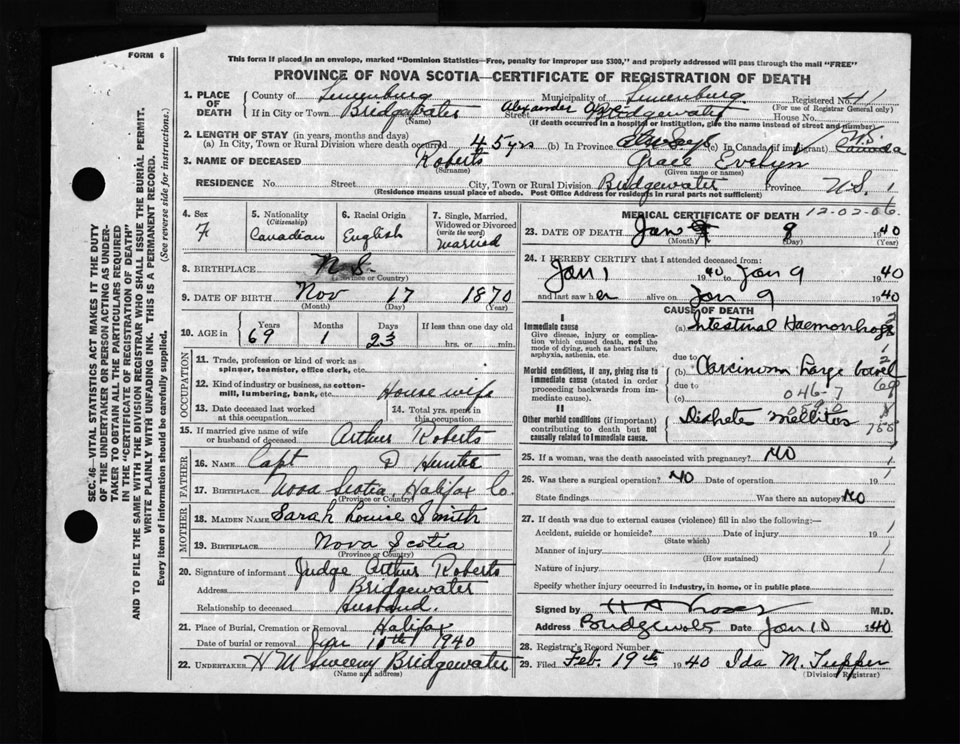 FORM 6
This form if placed in an envelope, marked "Dominion Statistics—Free, penalty for improper use $300," and properly addressed will pass through the mail "FREE"
PROVINCE OF NOVA SCOTIA—CERTIFICATE OF REGISTRATION OF DEATH
SEC. 46—VITAL STATISTICS ACT MAKES IT THE DUTY
OF THE UNDERTAKER OR PERSON ACTING AS UNDER-
TAKER TO OBTAIN ALL THE PARTICULARS REQUIRED
IN THE "CERTIFICATE OF REGISTRATION OF DEATH"
AND TO FILE THE SAME WITH THE DIVISION REGISTRAR WHO SHALL ISSUE THE BURIAL PERMIT.
WRITE PLAINLY WITH UNFADING INK. THIS IS A PERMANENT RECORD.
Every item of information should be carefully supplied. (See reverse side for instructions.)
1. PLACE OF DEATH County of Lunenburg Municipality of Lunenburg Registered No. 41
(For use of Registrar General only)
If in City or Town Bridgewater (Name) Alexander Street Bridgewater House No.
(If death occurred in a hospital or institution, give the name instead of street and number)
2. LENGTH OF STAY (in years, months and days)
(a) In City, Town or Rural Division where death occurred 45 yrs (b) In Province always (c) In Canada (if immigrant) N.S. Canada
3. NAME OF DECEASED Roberts (Surname) Grace Evelyn (Given name or names)
RESIDENCE No. Street City, Town or Rural Division Bridgewater Province N.S. 1
(Residence means usual place of abode. Post Office Address for Residents in rural parts not sufficient)
4. Sex F
5. Nationality (Citizenship) Canadian
6. Racial Origin English
7. Single, Married, Widowed or Divorced (write the word) Married
8. BIRTHPLACE N.S. (Province or Country)
9. DATE OF BIRTH Nov 17 1870 (Month) (Day) (Year)
10. AGE in Years Months Days If less than one day old
69 1 23 hrs. or min.
OCCUPATION
11. Trade, profession or kind of work as spinner, teamster, office clerk, etc.
12. Kind of industry or business, as cotton-mill, lumbering, bank, etc. House wife
13. Date deceased last worked at this occupation 14. Total yrs. spent in this occupation
15. If married give name of wife or husband of deceased Arthur Roberts
FATHER
16. NAME Capt D Hunter
17. BIRTHPLACE Nova Scotia, Halifax Co. (Province or Country)
MOTHER
18. MAIDEN NAME Sarah Louise Smith
19. BIRTHPLACE Nova Scotia (Province or Country)
20. Signature of informant Judge Arthur Roberts
Address Bridgewater
Relationship to deceased husband.
21. Place of Burial, Cremation or Removal Halifax
Date of burial or removal Jan 10th 1940
22. UNDERTAKER H M Sweeny Bridgewater (Name and address)
MEDICAL CERTIFICATE OF DEATH
12-02-06
23. DATE OF DEATH Jan 9 1940
(Month) (Day) (Year)
24. I HEREBY CERTIFY that I attended deceased from:
Jan 1 1940 to Jan 9 1940
and last saw her alive on Jan 9 1940
CAUSE OF DEATH
I
Immediate cause (a) Intestinal Haemorrhage
Give disease, injury or complication which caused death, not the mode of dying, such as heart failure, asphyxia, asthenia, etc.
due to
Morbid conditions, if any, giving rise to immediate cause (stated in order proceeding backwards from immediate cause). (b) Carcinoma Large bowel
due to
(c) 046-7
II
Other morbid conditions (if important) contributing to death but not causally related to immediate cause. Diabetes Mellitos
25. If a woman, was the death associated with pregnancy? NO
26. Was there a surgical operation? NO Date of operation 19
State findings Was there an autopsy NO
27. If death was due to external causes (violence) fill in also the following:—
Accident, suicide or homicide? Date of injury 19
(State which)
Manner of injury
(How sustained)
Nature of injury
Specify whether injury occurred in industry, in home, or in public place
Signed by M.D.
Address Bridgewater Date Jan 10 1940
28. Registrar's Record Number
29. Filed Feb. 19th 1940 Ida M. Tupper
(Division Registrar)